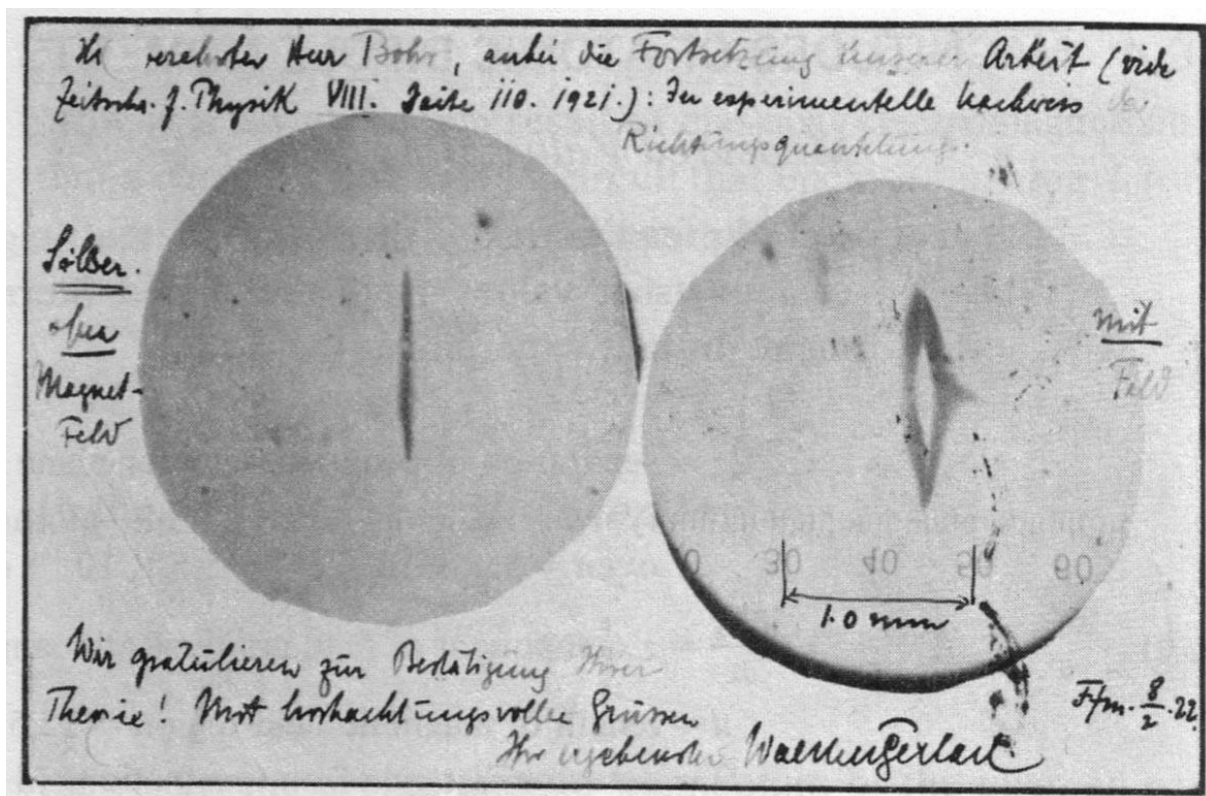 verehrter Herr Bohr, anbei die Fortsetzung unserer Arbeit (vide
Zeitschr. f. Physik VIII. Seite 110. 1921.): Der experimentelle Nachweis der
Richtungsquantelung.
Silber.
ohne
Magnet-
Feld
mit
Feld
0 30 40 50 60
1.0 mm
Wir gratulieren zur Bestätigung Ihrer
Theorie! Mit hochachtungsvollen Grüssen
Ihr ergebenster Walther Gerlach
F/m. 8/2. 22.